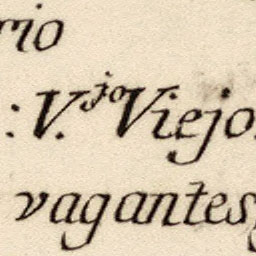 rio
: V.jo Viejo.
vagantes,